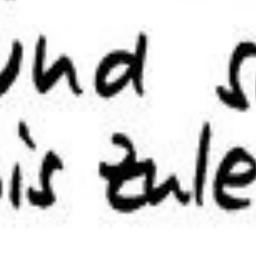 und s
is zule